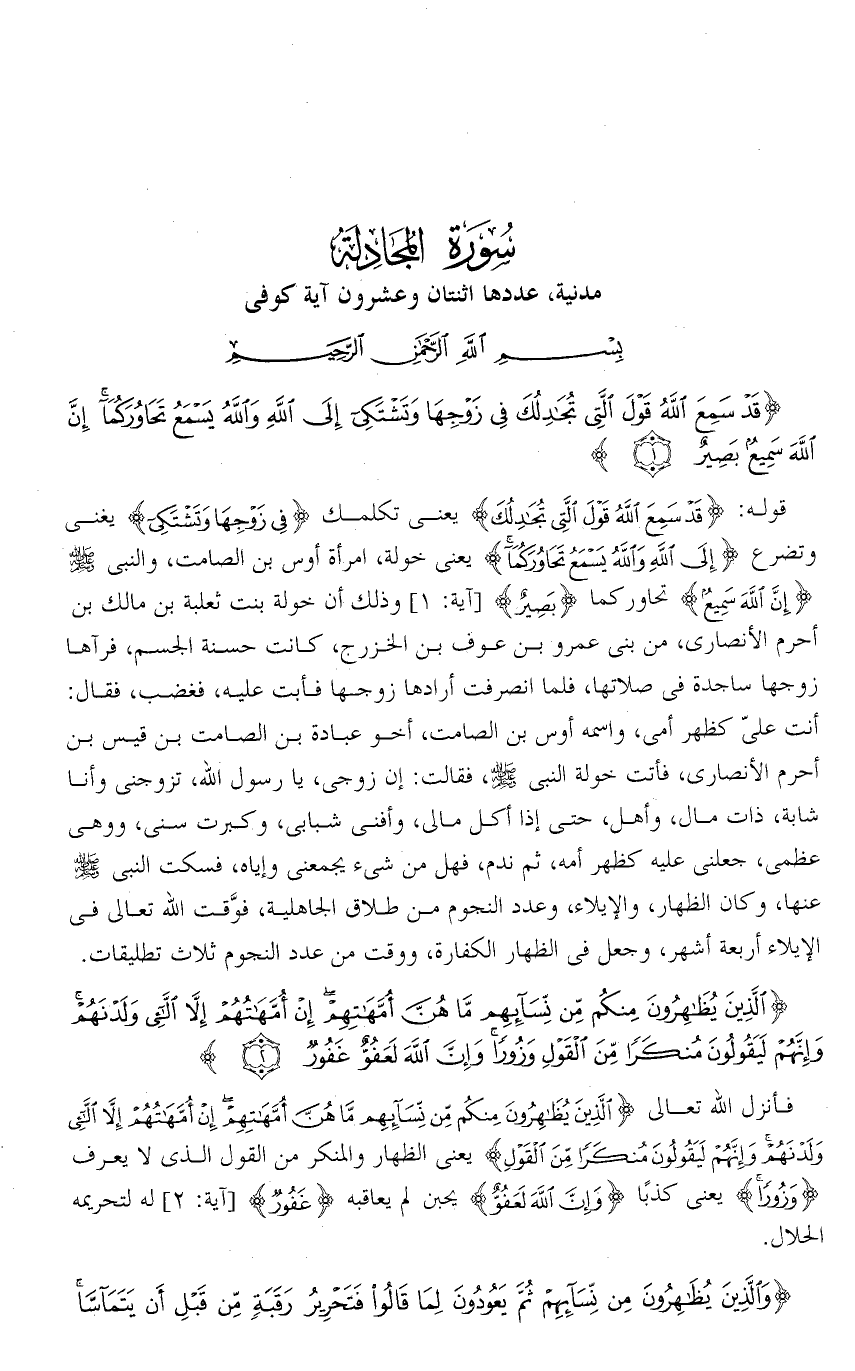 سُورَةُ المُجَادِلَة
مدنية، عددها اثنتان وعشرون آية كوفى
بِسْمِ ٱللَّهِ ٱلرَّحْمَٰنِ ٱلرَّحِيمِ
﴿قَدْ سَمِعَ ٱللَّهُ قَوْلَ ٱلَّتِى تُجَٰدِلُكَ فِى زَوْجِهَا وَتَشْتَكِىٓ إِلَى ٱللَّهِ وَٱللَّهُ يَسْمَعُ تَحَاوُرَكُمَآ ۚ إِنَّ
ٱللَّهَ سَمِيعٌۢ بَصِيرٌ ۝١ ﴾
قولـه: ﴿قَدْ سَمِعَ ٱللَّهُ قَوْلَ ٱلَّتِى تُجَٰدِلُكَ﴾ يعنـى تكلمـك ﴿فِى زَوْجِهَا وَتَشْتَكِىٓ﴾ يغنـى
وتضرع ﴿إِلَى ٱللَّهِ وَٱللَّهُ يَسْمَعُ تَحَاوُرَكُمَآ ۚ﴾ يعنى خولة، امرأة أوس بن الصامت، والنبى ﷺ
﴿إِنَّ ٱللَّهَ سَمِيعٌۢ﴾ تحاوركما ﴿بَصِيرٌ﴾ [آية: ١] وذلك أن خولة بنت ثعلبة بن مالك بن
أحرم الأنصارى، من بنى عمرو بـن عـوف بـن الخـزرج، كـانت حسـنة الجسـم، فرآهـا
زوجها ساجدة فى صلاتها، فلما انصرفت أرادها زوجـها فـأبت عليـه، فغضـب، فقـال:
أنت علىّ كظهر أمى، واسمه أوس بن الصامت، أخـو عبـادة بـن الصـامت بـن قيـس بـن
أحرم الأنصارى، فأتت خولة النبى ﷺ، فقالت: إن زوجى، يا رسول الله، تزوجنى وأنـا
شابة، ذات مـال، وأهـل، حتـى إذا أكـل مـالى، وأفنـى شـبابى، وكـبرت سـنى، ووهـى
عظمى، جعلنى عليه كظهر أمه، ثم ندم، فهل من شىء يجمعنى وإياه، فسكت النبى ﷺ
عنها، وكان الظهار، والإيلاء، وعدد النجوم مـن طـلاق الجاهليـة، فوقَّـت الله تعـالى فـى
الإيلاء أربعة أشهر، وجعل فى الظهار الكفارة، ووقت من عدد النجوم ثلاث تطليقات.
﴿ٱلَّذِينَ يُظَٰهِرُونَ مِنكُم مِّن نِّسَآئِهِم مَّا هُنَّ أُمَّهَٰتِهِمْ ۖ إِنْ أُمَّهَٰتُهُمْ إِلَّا ٱلَّٰٓـِٔى وَلَدْنَهُمْ ۚ
وَإِنَّهُمْ لَيَقُولُونَ مُنكَرًا مِّنَ ٱلْقَوْلِ وَزُورًا ۚ وَإِنَّ ٱللَّهَ لَعَفُوٌّ غَفُورٌ ۝٢ ﴾
فـأنزل الله تعـالى ﴿ٱلَّذِينَ يُظَٰهِرُونَ مِنكُم مِّن نِّسَآئِهِم مَّا هُنَّ أُمَّهَٰتِهِمْ ۖ إِنْ أُمَّهَٰتُهُمْ إِلَّا ٱلَّٰٓـِٔى
وَلَدْنَهُمْ ۚ وَإِنَّهُمْ لَيَقُولُونَ مُنكَرًا مِّنَ ٱلْقَوْلِ﴾ يعنى الظهار والمنكر من القول الـذى لا يعـرف
﴿وَزُورًا ۚ﴾ يعنى كذبًا ﴿وَإِنَّ ٱللَّهَ لَعَفُوٌّ﴾ يحين لم يعاقبه ﴿غَفُورٌ﴾ [آية: ٢] له لتحريمه
الحلال.
﴿وَٱلَّذِينَ يُظَٰهِرُونَ مِن نِّسَآئِهِمْ ثُمَّ يَعُودُونَ لِمَا قَالُوا۟ فَتَحْرِيرُ رَقَبَةٍ مِّن قَبْلِ أَن يَتَمَآسَّا ۚ